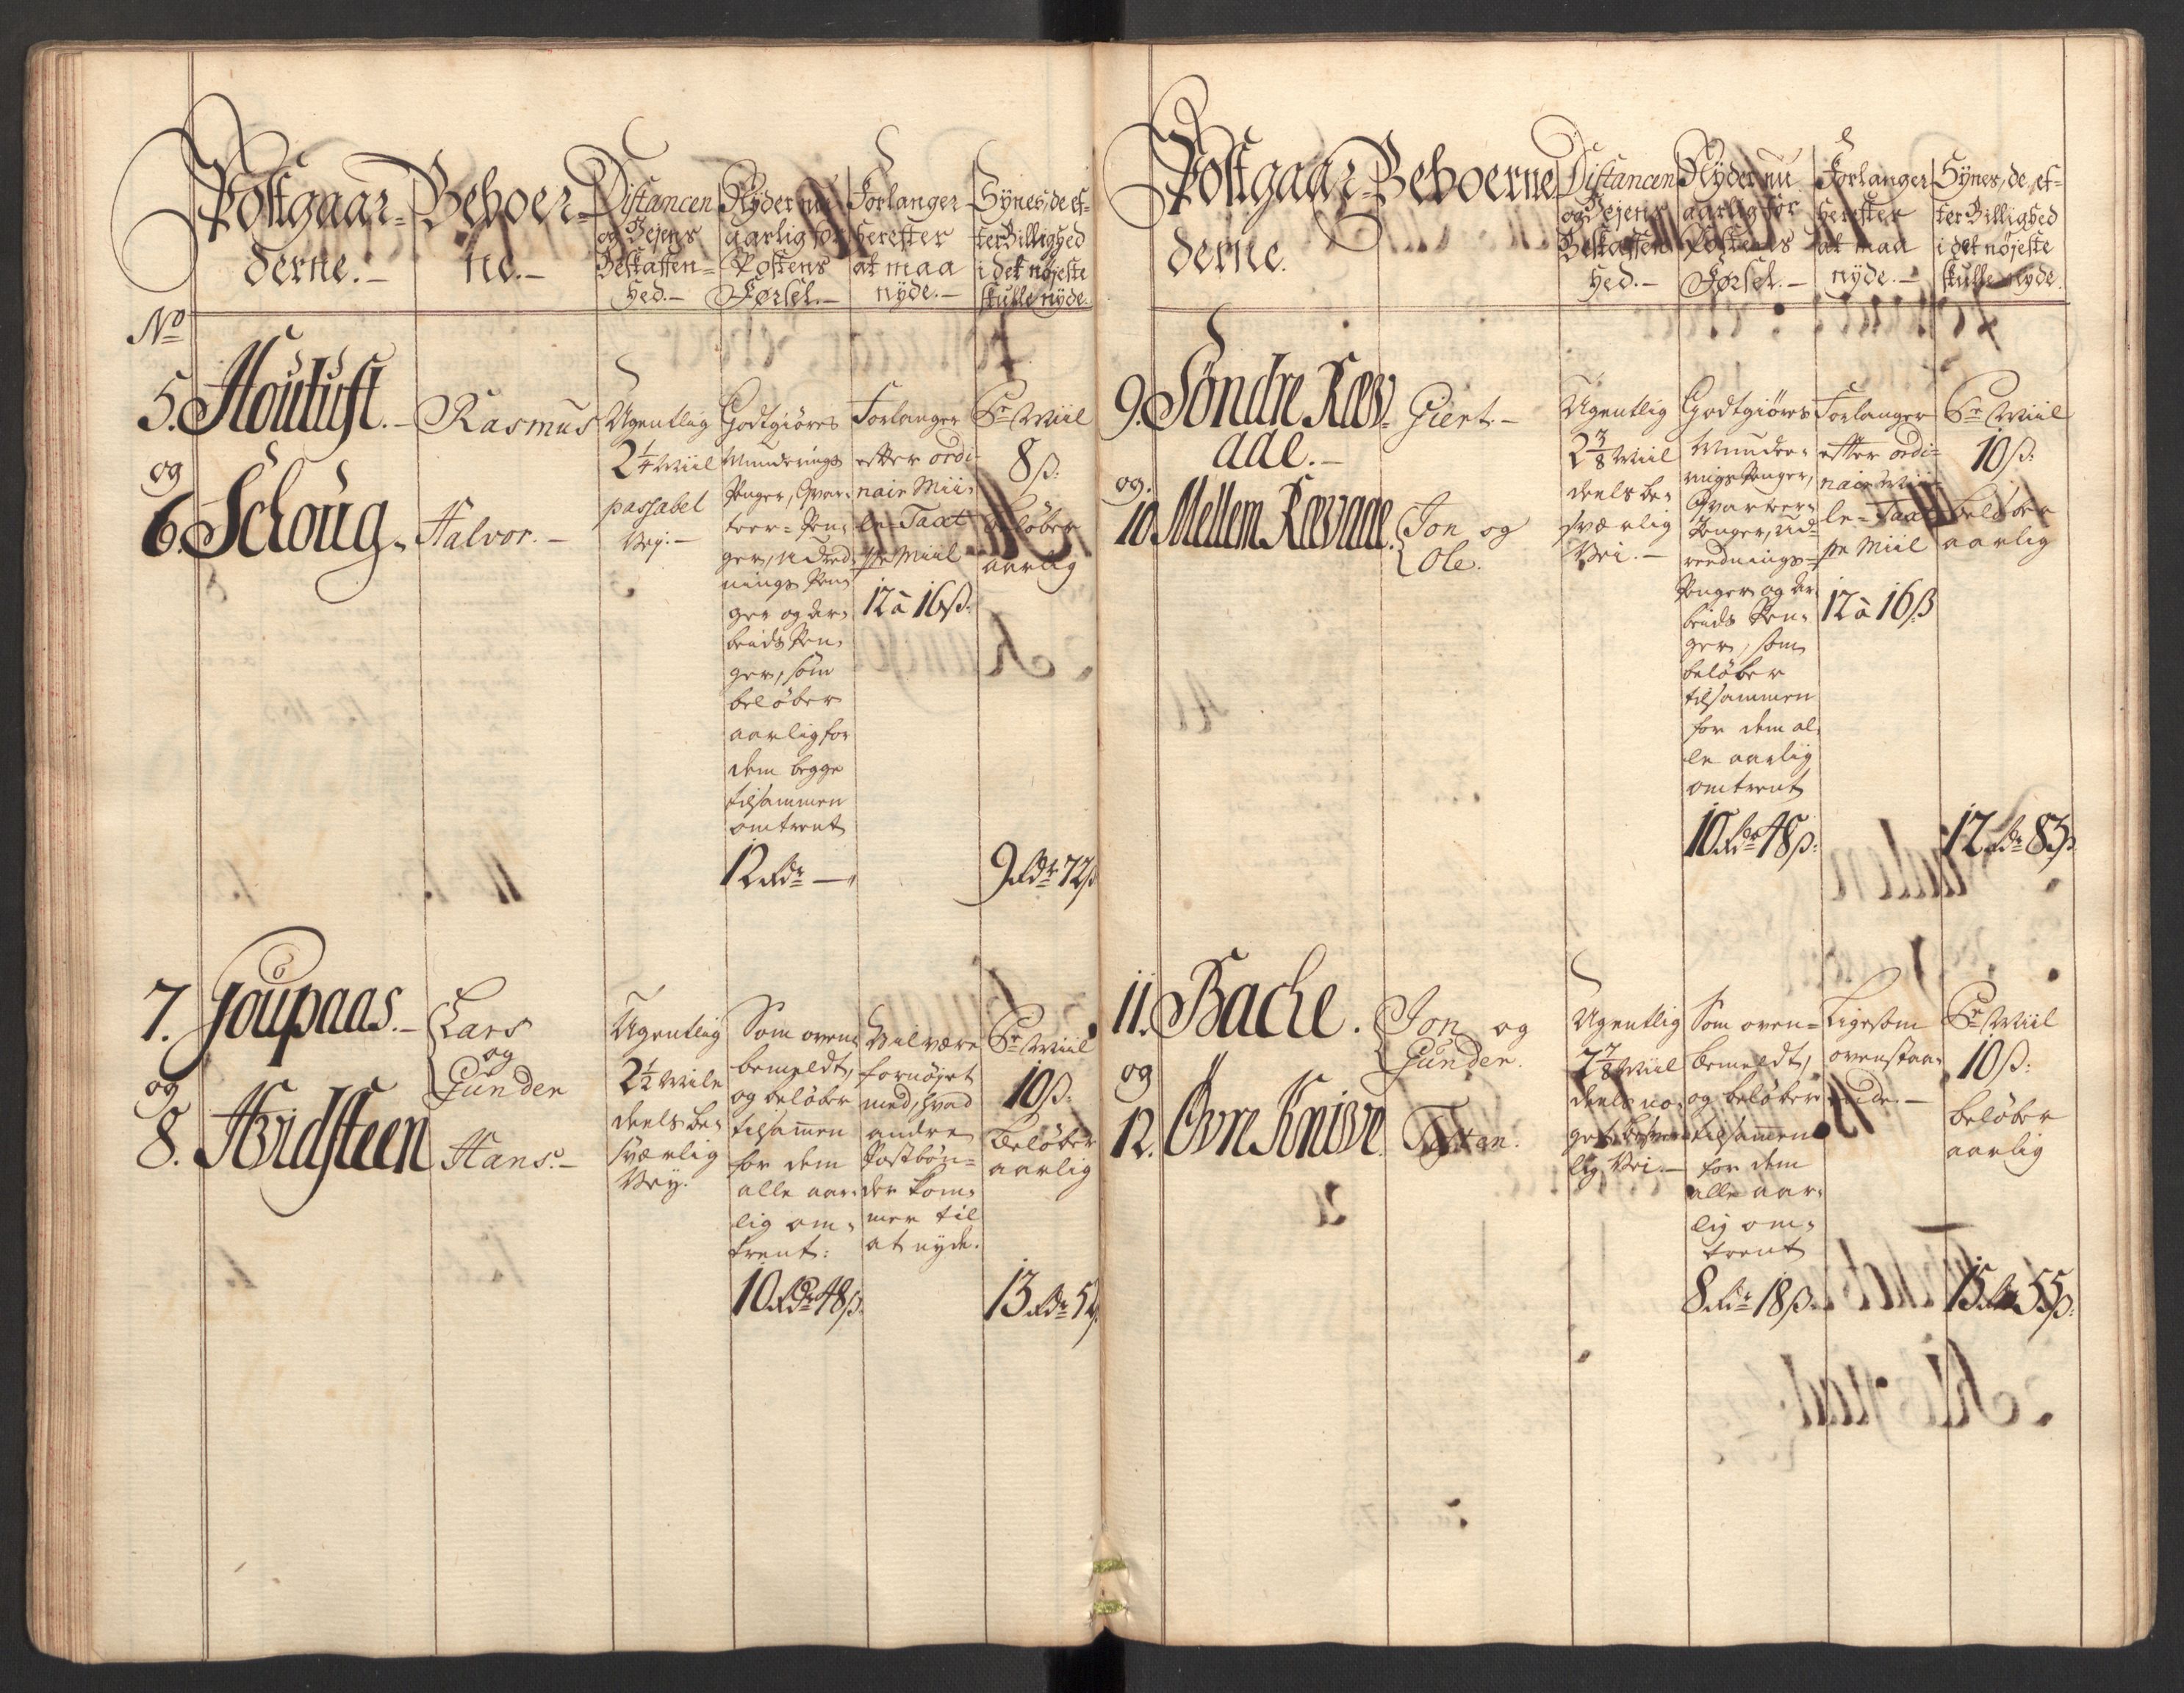 Postgaar-
derne.-
Beboer-
ne.-
Distancen
og Vejens
Beskaffen=
hed.-
Nyder nu
aarlig for
Postens
Førsel.-
Forlanger
herefter
at maa
nyde.-
Synes, de ef-
ter Billighed
i det nøjeste
skulle nyde.
No
5. Houtuft.-
og
6. Schoug.
Rasmus
Halvor.-
Ugentlig
2 1/4 Miil
passabel
Vej.-
Godtgiøres
Munderings
Penger, Qvar-
teer-Pen-
ger, Udred-
nings Pen-
ger og Ar-
beids Pen-
ger, som
beløber
aarlig for
dem begge
tilsammen
omtrent
12 Rdr -"
Forlanger
efter ordi-
nair Mii-
le-Taxt
pr Miil
12 à 16 ß.
Pr Miil
8 ß.
beløber
aarlig
9 Rdr 72 ß
7. Joupaas.-
og
8. Hvidsteen
Lars
og
Gunder
Hans.-
Ugentlig
2 1/2 Mile
deels be-
sværlig
Vey.
Som oven-
bemeldt,
og beløber
tilsamen
for dem
alle aar-
lig om-
trent:
10 Rdr 48 ß.
Vil være
fornøjet
med, hvad
andre
Postbøn-
der kom-
mer til
at nyde.
Pr Miil
10 ß.
beløber
aarlig
13 Rdr 52
Postgaar-
derne.
Beboerne
Distancen
og Vejens
Beskaffen
hed.-
Nyder nu
aarlig for
Postens
Førsel.-
Forlanger
herefter
at maa
nyde.-
Synes, de, ef-
ter Billighed
i det nøjeste
skulle nyde.
9. Søndre Ræv-
aae.-
og.
10. Mellem Rævaae.
Giert.-
Jon og
Ole.
Ugentlig
2 3/8 Miil
deels be-
sværlig
Vei.-
Godtgiøres
Munder-
ings Penger,
Qvarteer-
Penger, Ud-
rednings-
Penger og Ar-
beids Pen-
ger, som
beløber
tilsammen
for dem al-
le aarlig
omtrent
10 Rdr 48 ß.
Forlanger
efter ordi-
nair Mii-
le-Taxt
pr Miil
12 à 16 ß
Pr Miil
10 ß.
beløber
aarlig
12 Rdr 83 ß
11. Bache.
og
12. Øvre Knive.
Jon og
Gunder.
Ugentlig
2 7/8 Miil
deels no-
get besvær-
lig Vei.-
Som oven-
bemeldt,
og beløber
tilsamen
for dem
alle aar-
lig om-
trent
8 Rdr 18 ß.
Ligesom
ovenstaa-
ende.-
Pr Miil
10 ß.
beløber
aarlig
15 Rdr 55 ß.